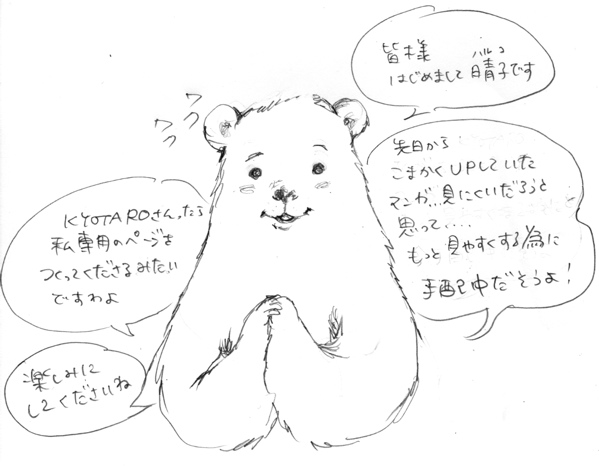 皆様
はじめまして 晴子です
ハルコ
先日から
こまかくUPしていた
マンガ...見にくいだろうと
思って....
もっと見やすくする為に
手配中だそうよ!
KYOTAROさんったら
私専用のページを
つくってくださるみたい
ですわよ
楽しみに
してくださいね
ワク
ワク